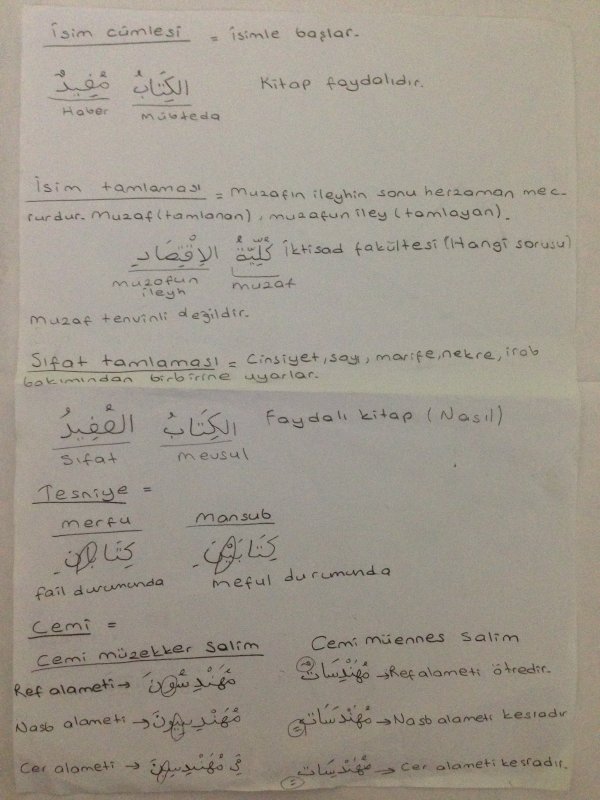 İsim cümlesi = isimle başlar.
الكِتَابُ مُفِيدٌ Kitap faydalıdır.
Haber Mübteda
İsim tamlaması = Muzafın ileyhin sonu herzaman mec-
rurdur. Muzaf (tamlanan), muzafun iley (tamlayan).
كُلِّيَّةُ الاِقْتِصَادِ İktisad fakültesi (Hangi sorusu)
muzafun ileyh muzaf
Muzaf tenvinli değildir.
Sıfat tamlaması = Cinsiyet, sayı, marife, nekre, irab
bakımından birbirine uyarlar.
الكِتَابُ المُفِيدُ Faydalı kitap (Nasıl)
Sıfat mevsul
Tesniye =
merfu mansub
كِتَابَانِ كِتَابَيْنِ
fail durumunda meful durumunda
Cemi =
Cemi müzekker salim Cemi müennes salim
Ref alameti → مُهَنْدِسُونَ مُهَنْدِسَاتٌ → Ref alameti ötredir.
Nasb alameti → مُهَنْدِسِينَ مُهَنْدِسَاتٍ → Nasb alameti kesradır
Cer alameti → فِي مُهَنْدِسِينَ مُهَنْدِسَاتٍ → Cer alameti kesradır.